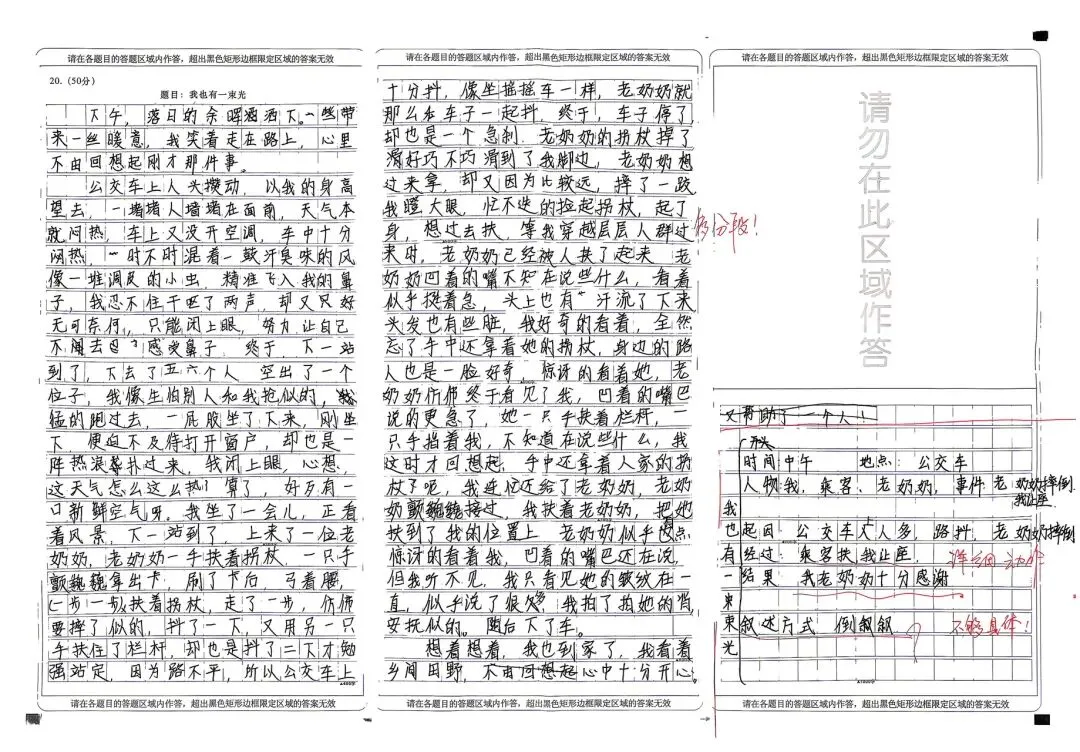 请在各题目的答题区域内作答，超出黑色矩形边框限定区域的答案无效
20.（50分）
题目：我也有一束光
下午，落日的余晖洒洒下。一些带
来一丝暖意，我笑着走在路上，心里
不由回想起刚才那件事。
公交车上人头攒动，以我的身高
望去，一堵堵人墙堵在面前，天气本
就闷热，车上又没开空调，车中十分
闷热，一时不时混着一鼓汗臭味的风
像一堆调皮的小虫，精准飞入我的鼻
子，我忍不住干呕了两声，却又只好
无可奈何，只能闭上眼，努力让自己
不闻去感受鼻子，终于，下一站
到了，下去了五六个人 空出了一个
位子，我像生怕别人和我抢似的，
猛的跑过去，一屁股坐了下来，刚坐
下 便迫不及待打开窗户，却也是一
阵热浪扑过来，我闭上眼，心想，
这天气怎么这么热！算了，好歹有一
口新鲜空气呀。我坐了一会儿，正看
着风景，下一站到了，上来了一位老
奶奶，老奶奶一手扶着拐杖，一只手
颤巍巍拿出卡，刷了卡后，弓着腰，
一步一步扶着拐杖，走了一步，仿佛
要摔了似的，抖了一下，又用另一只
手扶住了栏杆，却也是抖了二下才勉
强站定，因为路不平，所以公交车上
请在各题目的答题区域内作答，超出黑色矩形边框限定区域的答案无效
请在各题目的答题区域内作答，超出黑色矩形边框限定区域的答案无效
十分抖，像坐摇摇车一样，老奶奶就
那么在车子一起抖，终于，车子停了
却也是一个急刹，老奶奶的拐杖掉了
滑好巧不巧滑到了我脚边，老奶奶想
过来拿，却又因为比较远，摔了一跤
我瞪大眼，忙不迭的捡起拐杖，起了
身，想过去扶，等我穿越层层人群过
来时，老奶奶已经被人扶了起来 老
奶奶凹着的嘴不知在说些什么，看着
似乎挺着急，头上也有 汗流了下来
头发也有些脏，我好奇的看着，全然
忘了手中还拿着她的拐杖，身边的路
人也是一脸好奇，惊讶的看着她，老
奶奶仿佛终于看见了我，凹着的嘴巴
说的更急了，她一只手扶着栏杆，一
只手指着我，不知道在说些什么，我
这时才回想起，手中还拿着人家的拐
杖了呢，我连忙还给了老奶奶，老奶
奶颤巍巍接过，我扶着老奶奶，把她
扶到了我的位置上 老奶奶似乎
惊讶的看着我，凹着的嘴巴还在说，
但我听不见，我只看见她的皱纹在一
直，似乎说了很久，我拍了拍她的背
安抚似的。随后下了车。
想着想着，我也到家了，我看着
乡间田野，不由回想起心中十分开心
请在各题目的答题区域内作答，超出黑色矩形边框限定区域的答案无效
分段！
请在各题目的答题区域内作答，超出黑色矩形边框限定区域的答案无效
请勿在此区域作答
又帮助了一个人！
开头
时间 中午 地点：公交车
人物 我，乘客，老奶奶，事件 老奶奶摔倒
我让座
我
也 起因：公交车人多，路抖，老奶奶摔倒
有 经过：乘客扶我让座，
详细动作
一 结果 我老奶奶十分感谢
束
束 叙述方式 倒叙叙
不够具体！
光
请在各题目的答题区域内作答，超出黑色矩形边框限定区域的答案无效